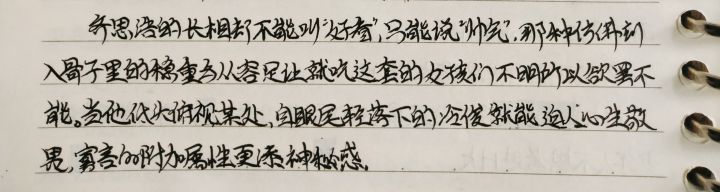 齐思浯的长相都不能叫“好看”,只能说“帅气”,那种仿佛刻
入骨子里的稳重与从容足让就吃这套的女孩们不明所以欲罢不
能。当他低头俯视某处,自眼尾轻落下的冷傲就能迫人心生敬
畏,寡言的附加属性更添神秘感。